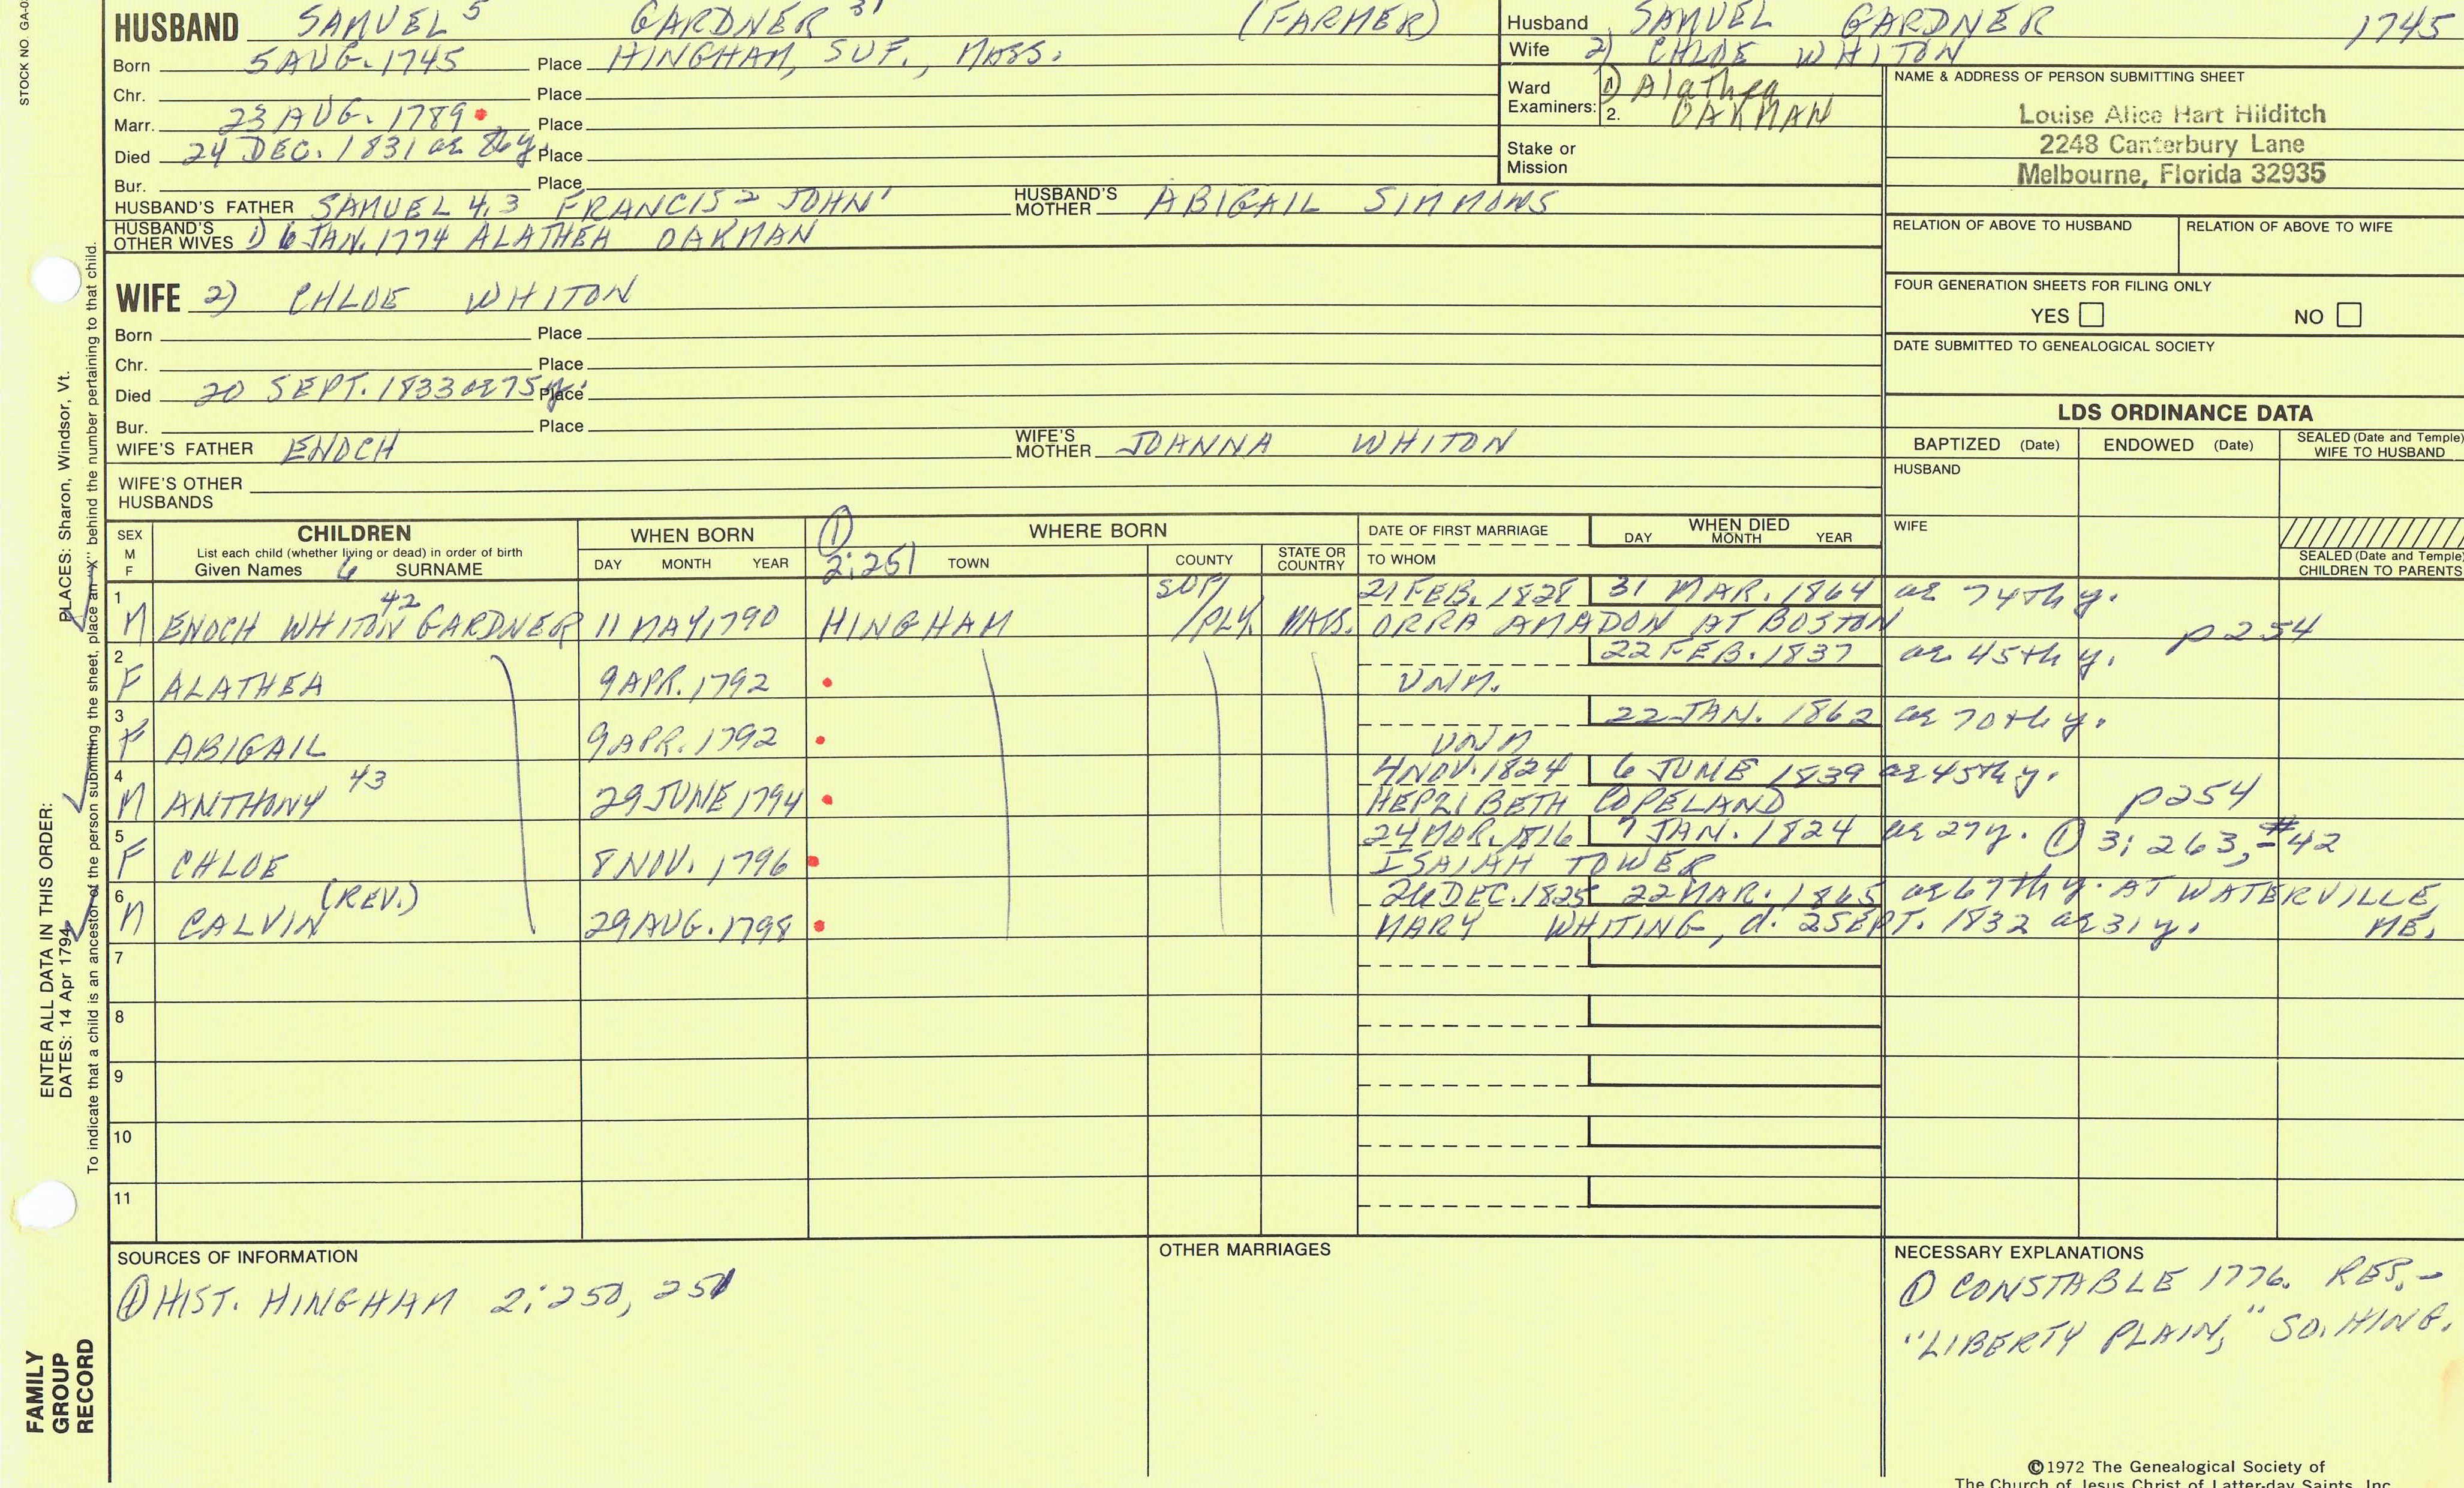 STOCK NO. GA-0
HUSBAND SAMUEL 5 GARDNER 31 (FARMER)
Born 5 AUG. 1745 Place HINGHAM, SUF., MASS.
Chr. Place
Marr. 23 AUG. 1789 Place
Died 24 DEC. 1831 ae 86y. Place
Bur. Place
HUSBAND'S FATHER SAMUEL 4,3 FRANCIS 2 JOHN 1 HUSBAND'S MOTHER ABIGAIL SIMMONS
HUSBAND'S OTHER WIVES 1) 6 JAN. 1774 ALATHEA OAKMAN
Husband SAMUEL GARDNER 1745
Wife 2) CHLOE WHITON
Ward Examiners: 1) Alathea
2. OAKMAN
Stake or Mission
NAME & ADDRESS OF PERSON SUBMITTING SHEET
Louise Alice Hart Hilditch
2248 Canterbury Lane
Melbourne, Florida 32935
RELATION OF ABOVE TO HUSBAND RELATION OF ABOVE TO WIFE
FOUR GENERATION SHEETS FOR FILING ONLY
YES NO
DATE SUBMITTED TO GENEALOGICAL SOCIETY
WIFE 2) CHLOE WHITON
Born Place
Chr. Place
Died 20 SEPT. 1833 ae 75y. Place
Bur. Place
WIFE'S FATHER ENOCH WIFE'S MOTHER JOANNA WHITON
WIFE'S OTHER HUSBANDS
LDS ORDINANCE DATA
BAPTIZED (Date) ENDOWED (Date) SEALED (Date and Temple) WIFE TO HUSBAND
HUSBAND
WIFE
SEALED (Date and Temple) CHILDREN TO PARENTS
SEX M F CHILDREN WHEN BORN ① WHERE BORN DATE OF FIRST MARRIAGE WHEN DIED
List each child (whether living or dead) in order of birth
Given Names 6 SURNAME DAY MONTH YEAR 2:251 TOWN COUNTY STATE OR COUNTRY TO WHOM DAY MONTH YEAR
1 42 SUF/ 21 FEB. 1828 31 MAR. 1864 ae 74th y.
M ENOCH WHITON GARDNER 11 MAY 1790 HINGHAM /PLY. MASS. ORRA AMADON AT BOSTON p254
2 22 FEB. 1837 ae 45th y.
F ALATHEA 9 APR. 1792 UNM.
3 22 JAN. 1862 ae 70th y.
F ABIGAIL 9 APR. 1792 UNM
4 43 4 NOV. 1824 6 JUNE 1839 ae 45th y.
M ANTHONY 29 JUNE 1794 HEPZIBETH COPELAND p254
5 24 MAR. 1816 7 JAN. 1824 ae 27y. ① 3:263, #42
F CHLOE 8 NOV. 1796 ISAIAH TOWER
6 (REV.) 26 DEC. 1825 22 MAR. 1865 ae 67th y. AT WATERVILLE,
M CALVIN 29 AUG. 1798 MARY WHITING, d. 2 SEPT. 1832 ae 31 y. ME.
7
8
9
10
11
SOURCES OF INFORMATION
① HIST. HINGHAM 2:250, 251
OTHER MARRIAGES
NECESSARY EXPLANATIONS
① CONSTABLE 1776. RES.-
"LIBERTY PLAIN," SO. HING.
©1972 The Genealogical Society of
The Church of Jesus Christ of Latter-day Saints, Inc.
ENTER ALL DATA IN THIS ORDER:
DATES: 14 Apr 1794 PLACES: Sharon, Windsor, Vt.
To indicate that a child is an ancestor of the person submitting the sheet, place an "X" behind the number pertaining to that child.
FAMILY
GROUP
RECORD